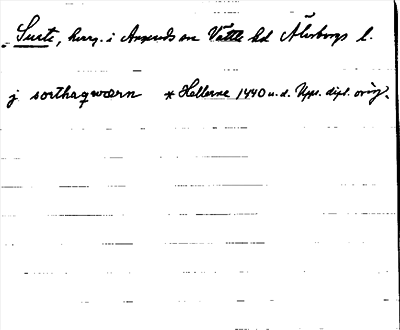 Surte, herrg. i Angereds sn Vättle hd Älvsborgs l.
j sorthaqwærn * Hellerne 1440 u.d. Upps. dipl. orig.